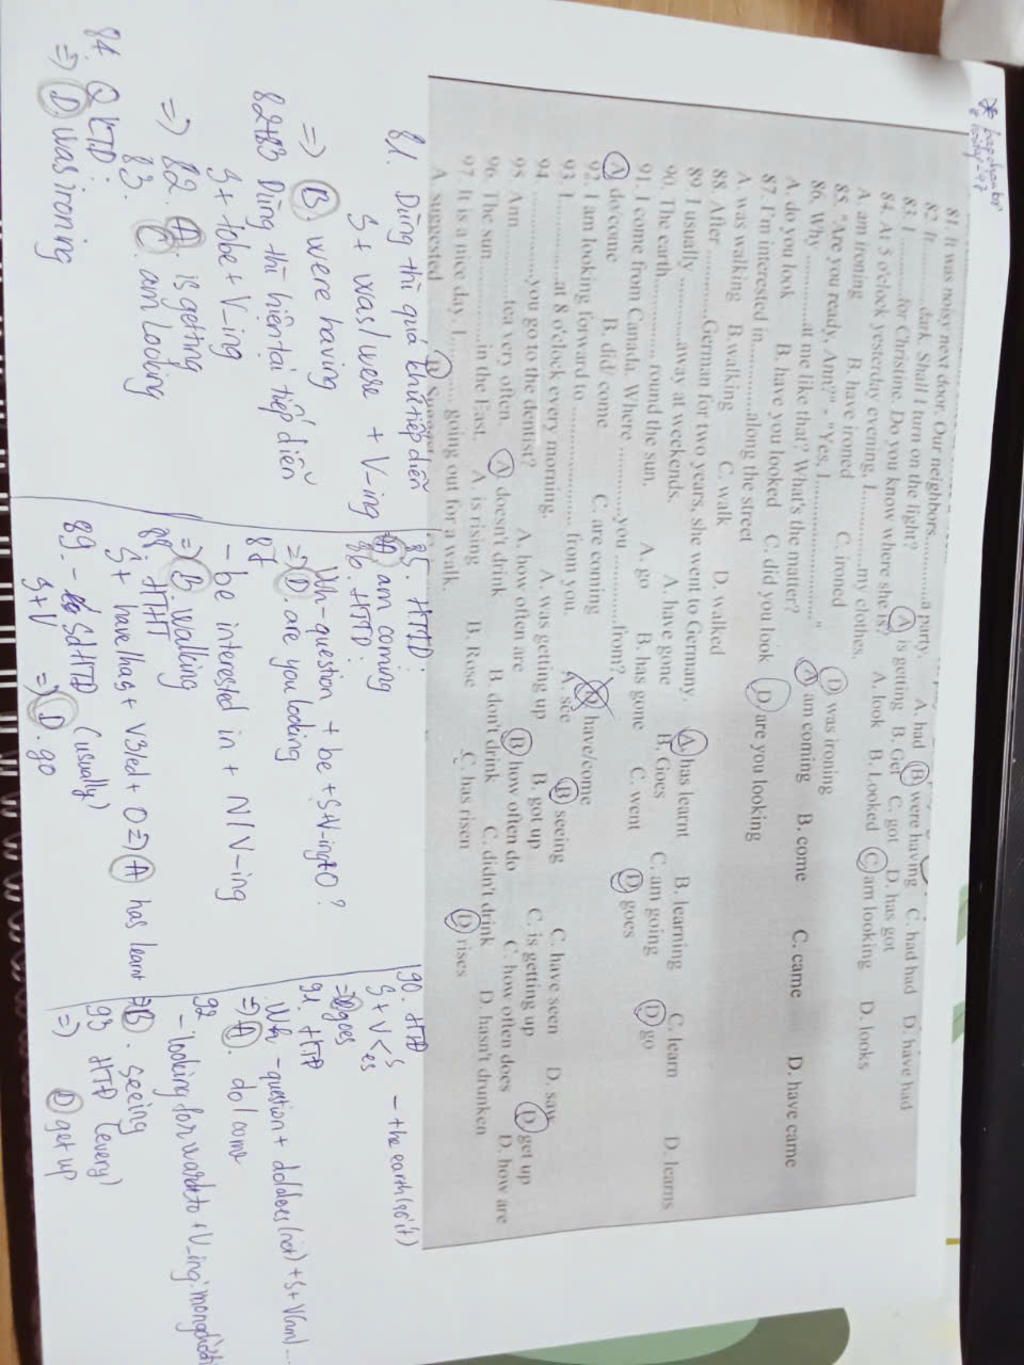 81. It was noisy next door. Our neighbors............a party. A. had B. were having C. had had D. have had
82. It ............dark. Shall I turn on the light? A. is getting B. Get C. got D. has got
83. I ............for Christine. Do you know where she is? A. look B. Looked C. am looking D. looks
84. At 5 o'clock yesterday evening, I............my clothes.
A. am ironing B. have ironed C. ironed D. was ironing
85. "Are you ready, Ann?" - "Yes, I............" A. am coming B. come C. came D. have came
86. Why ............at me like that? What's the matter?
A. do you look B. have you looked C. did you look D. are you looking
87. I'm interested in............along the street
A. was walking B.walking C. walk D. walked
88. After ............German for two years, she went to Germany. A. has learnt B. learning C. learn D. learns
89. I usually............away at weekends. A. have gone B. Goes C. am going D. go
90. The earth............ round the sun. A. go B. has gone C. went D. goes
91. I come from Canada. Where ............you ............from?
A. do/come B. did/ come C. are coming D. have/come
92. I am looking forward to ............ from you. A. see B. seeing C. have seen D. saw
93. I............at 8 o'clock every morning. A. was getting up B. got up C. is getting up D. get up
94. ............you go to the dentist? A. how often are B. how often do C. how often does D. how are
95. Ann ............tea very often. A. doesn't drink B. don't drink C. didn't drink D. hasn't drunken
96. The sun ............in the East. A. is rising B. Rose C. has risen D. rises
97. It is a nice day. I............ going out for a walk.
A. suggested
81. Dùng thì quá khứ tiếp diễn
S + was/were + V-ing
=> B. were having
82+83 Dùng thì hiện tại tiếp diễn
S + tobe + V-ing
=> 82. A. is getting
83. C. am looking
84. QKTD:
=> D was ironing
85. HTTD:
A am coming
86. HTTD:
Wh-question + be + S+V-ing+O?
=> D. are you looking
87
- be interested in + N/V-ing
=> B. walking
88. HTHT
S + have/has + V3/ed + O => A has learnt
89. - HTD (usually)
S+V => D. go
90. HTD - the earth (số ít)
S + V < s
es
=> D goes
91. HTD
Wh-question + do/does (not) + S + V(nm)...
=> A. do/come
92
- looking forward to + V_ing: mong đợi
=> B. seeing
93 HTD (every)
=> D get up